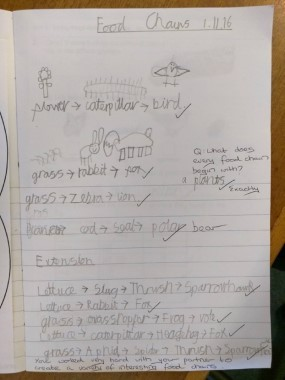 Food Chains 1.11.16
plower → caterpillar → bird
grass → rabbit → fox
Q: What does
every food chain
begin with?
A plants
Exactly
grass → Zebra → lion
cod → seal → polar bear
Extension
Lettuce → Slug → Thrush → Sparrowhawk
Lettuce → Rabbit → Fox
grass → Grasshopper → Frog →
Lettuce → caterpillar → Hedgehog → Fox
grass → Aphid → Spider → Thrush → Sparrowhawk
You worked very hard with your partner to
create a variety of interesting food chains